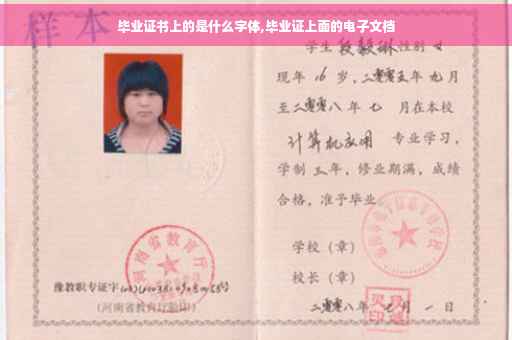 毕业证书上的是什么字体,毕业证上面的电子文档
样本
学生 段毅琳 性别 女
现年 16 岁,二零零五年 九 月
至二零零八年 七 月在本校
计算机应用 专业学习,
学制 三 年,修业期满,成绩
合格,准予毕业
学校(章)
校长(章)
河南省教育厅
豫教职专证字
(河南省教育厅验印)
二零零八年 七 月 一 日